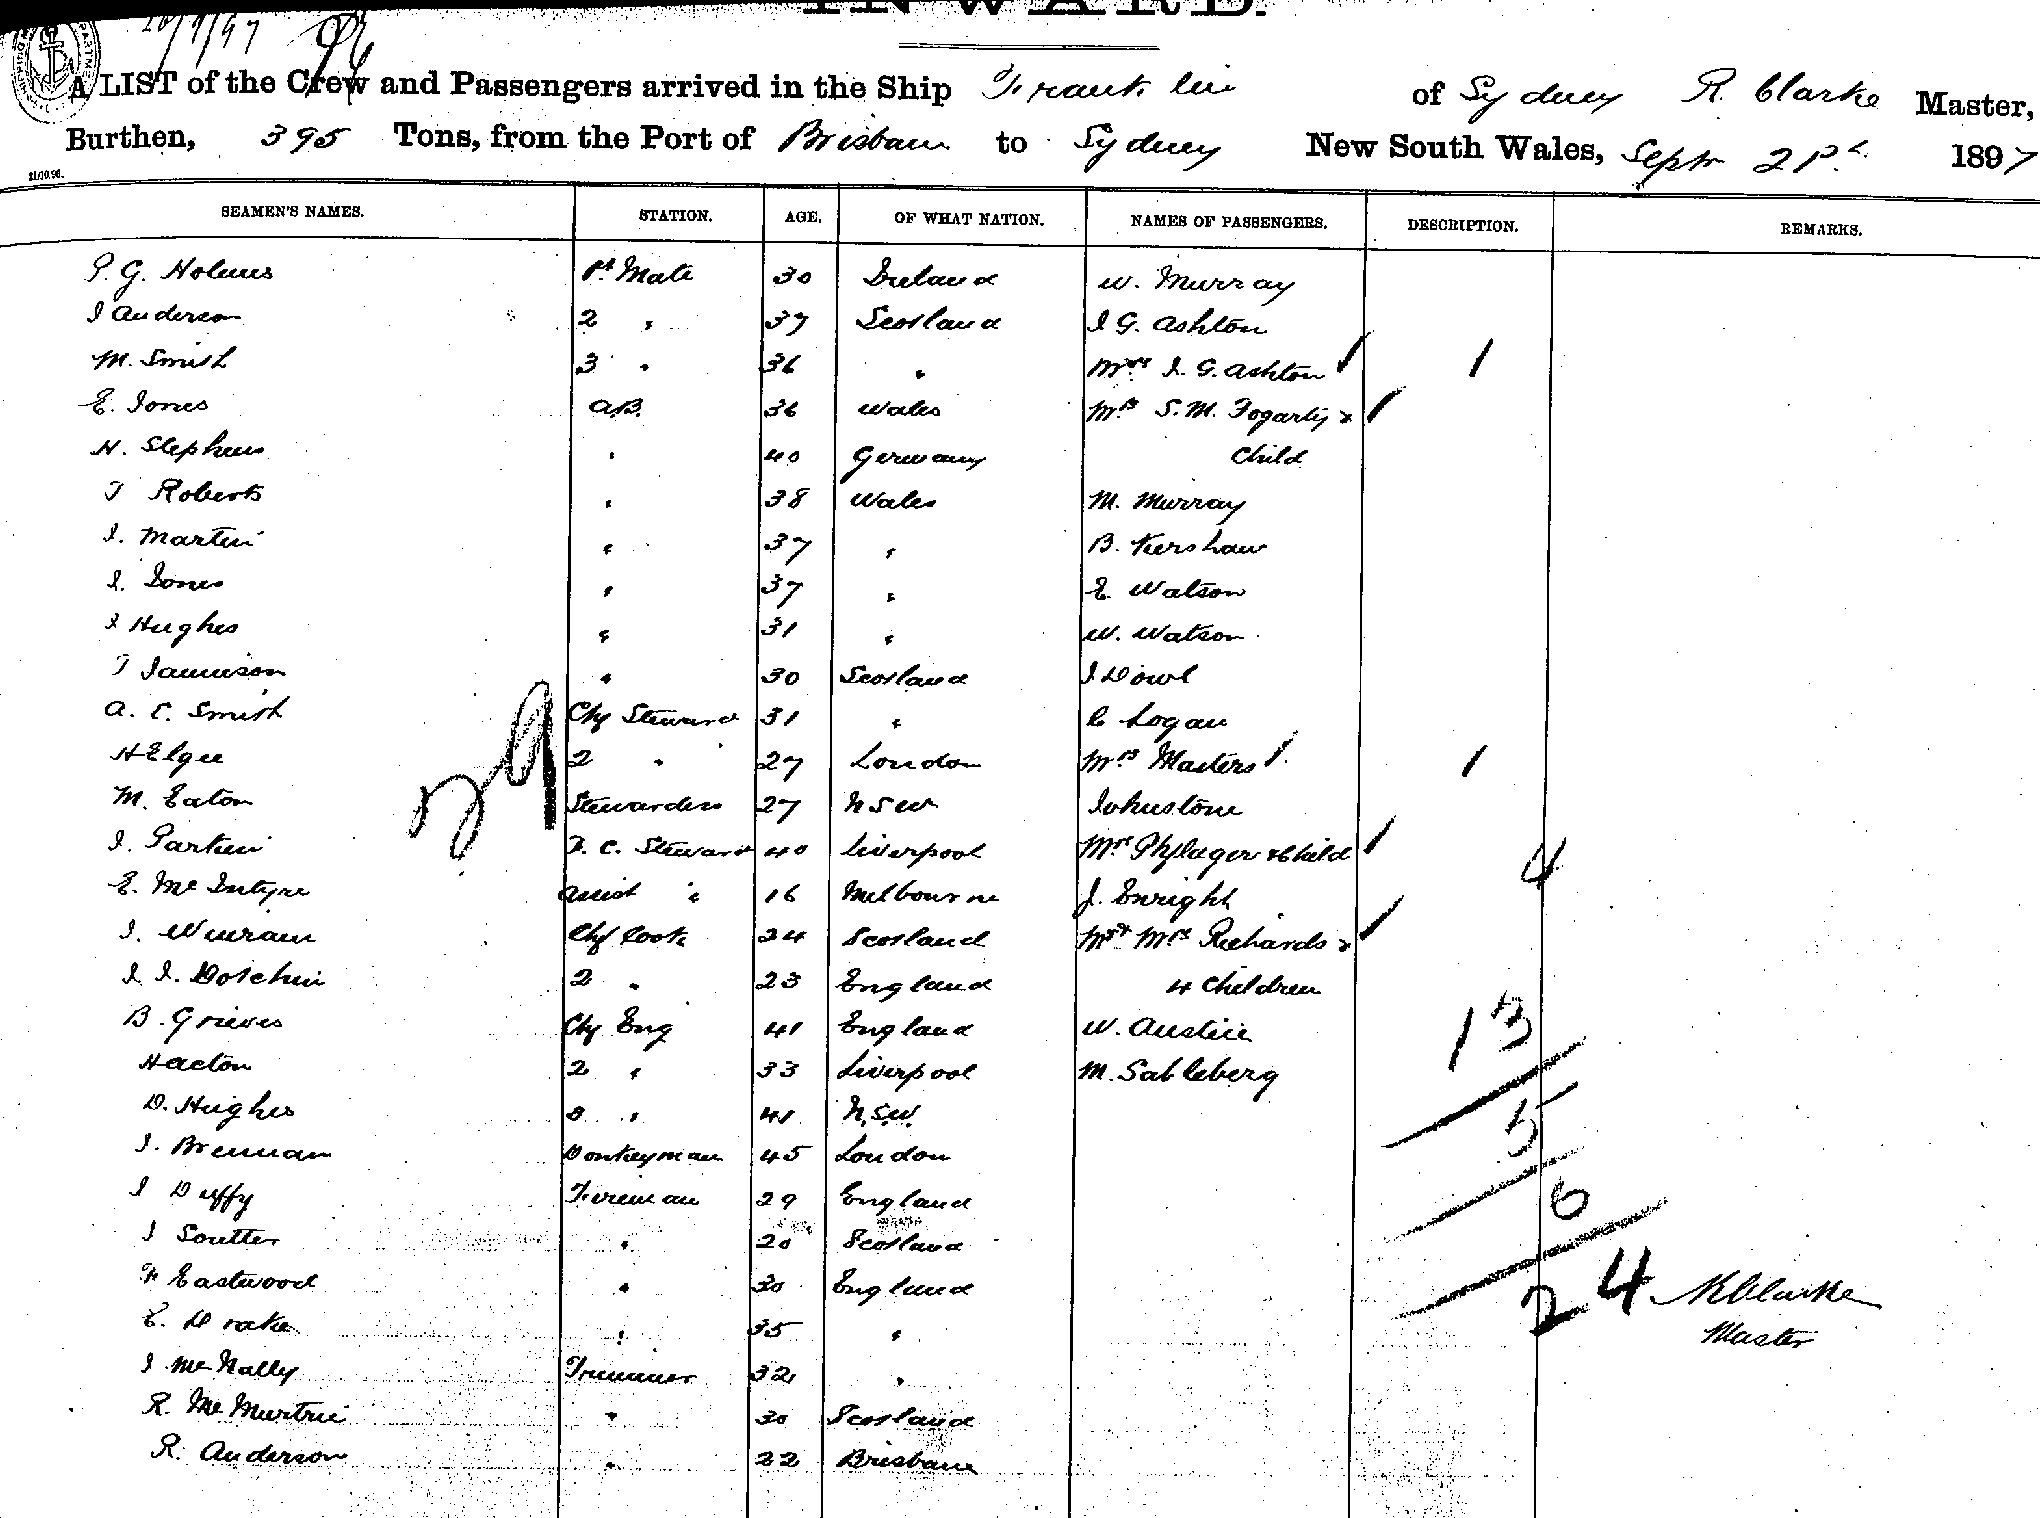 INWARD.
A LIST of the Crew and Passengers arrived in the Ship Franklin of Sydney R. Clarke Master,
Burthen, 395 Tons, from the Port of Brisbane to Sydney New South Wales, Septr 21st 1897
SEAMEN'S NAMES. STATION. AGE. OF WHAT NATION. NAMES OF PASSENGERS. DESCRIPTION. REMARKS.
P. G. Holmes 1st Mate 30 Ireland W. Murray
J Anderson 2 " 37 Scotland J G. Ashton
M. Smith 3 " 36 " Mrs J. G. Ashton 1 1
E. Jones A.B. 36 Wales Mrs S. M. Fogarty & 1
H. Stephens " 40 Germany Child
T Roberts " 38 Wales M. Murray
J. Martin " 37 " B. Kershaw
J. Jones " 37 " E Watson
J Hughes " 31 " W. Watson
T Jamieson " 30 Scotland J Dowl
A. C. Smith Chf Steward 31 " C Logan
H Elgee 2 " 27 London Mrs Masters 1 1
M. Eaton Stewardess 27 NSW Johnstone
J. Partin F. C. Steward 40 Liverpool Mrs Phflager & Child 1
E. McIntyre Assist " 16 Melbourne J. Enright 4
J. Winram Chf Cook 24 Scotland Mr & Mrs Richards & 1
J. J. Dotchin 2 " 23 England 4 Children
B. Grieves Chf Eng 41 England W. Austin 13
H Acton 2 " 33 Liverpool M. Sableberg
D. Hughes 3 " 41 N.S.W. 5
J. Brennan Donkeyman 45 London
J Duffy Fireman 29 England 6
J Soutter " 20 Scotland
F Eastwood " 30 England 24 R Clarke
E. Drake " 35 " Master
J McNally Trimmer 32 "
R. McMurtrie " 30 Scotland
R. Anderson " 22 Brisbane
29